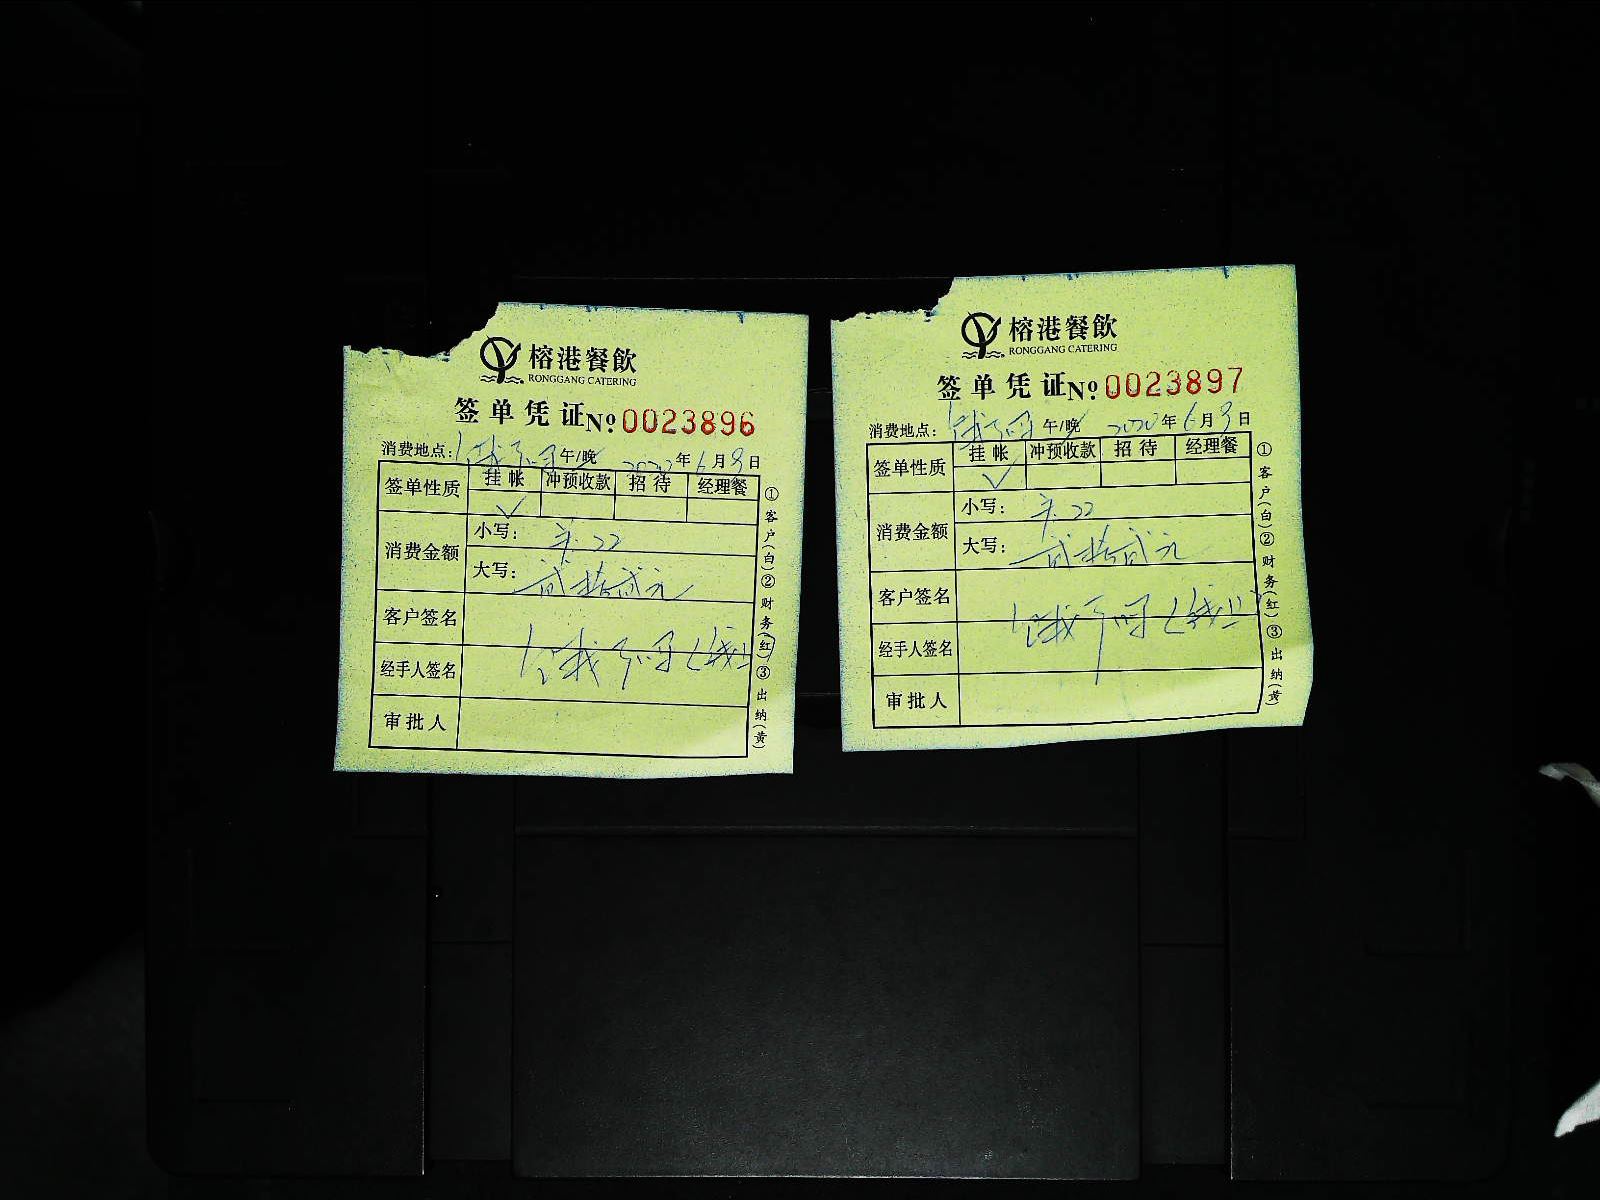 榕港餐飲
RONGGANG CATERING
签单凭证№0023896
消费地点: 饿了吗 午/晚 2020年6月9日
签单性质 挂帐 冲预收款 招待 经理餐
✓
消费金额 小写: 22
大写: 贰拾贰元
客户签名
饿了吗(钱)
经手人签名
审批人
①客户(白)②财务(红)③出纳(黄)
榕港餐飲
RONGGANG CATERING
签单凭证№0023897
消费地点: 饿了吗 午/晚 2020年6月9日
签单性质 挂帐 冲预收款 招待 经理餐
✓
消费金额 小写: 22
大写: 贰拾贰元
客户签名
饿了吗(钱)
经手人签名
审批人
①客户(白)②财务(红)③出纳(黄)